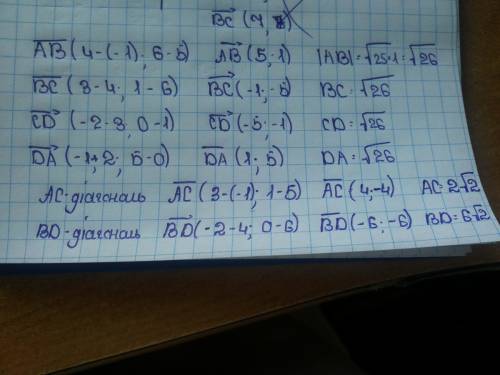 BC (7,
AB (4-(-1); 6-5) AB (5; 1) |AB|=√25+1=√26
BC (3-4; 1-6) BC (-1; -5) BC=√26
CD (-2-3, 0-1) CD (-5; -1) CD=√26
DA (-1+2; 5-0) DA (1; 5) DA=√26
AC-діагональ AC (3-(-1); 1-5) AC (4;-4) AC=2√2
BD-діагональ BD (-2-4; 0-6) BD (-6; -6) BD=6√2